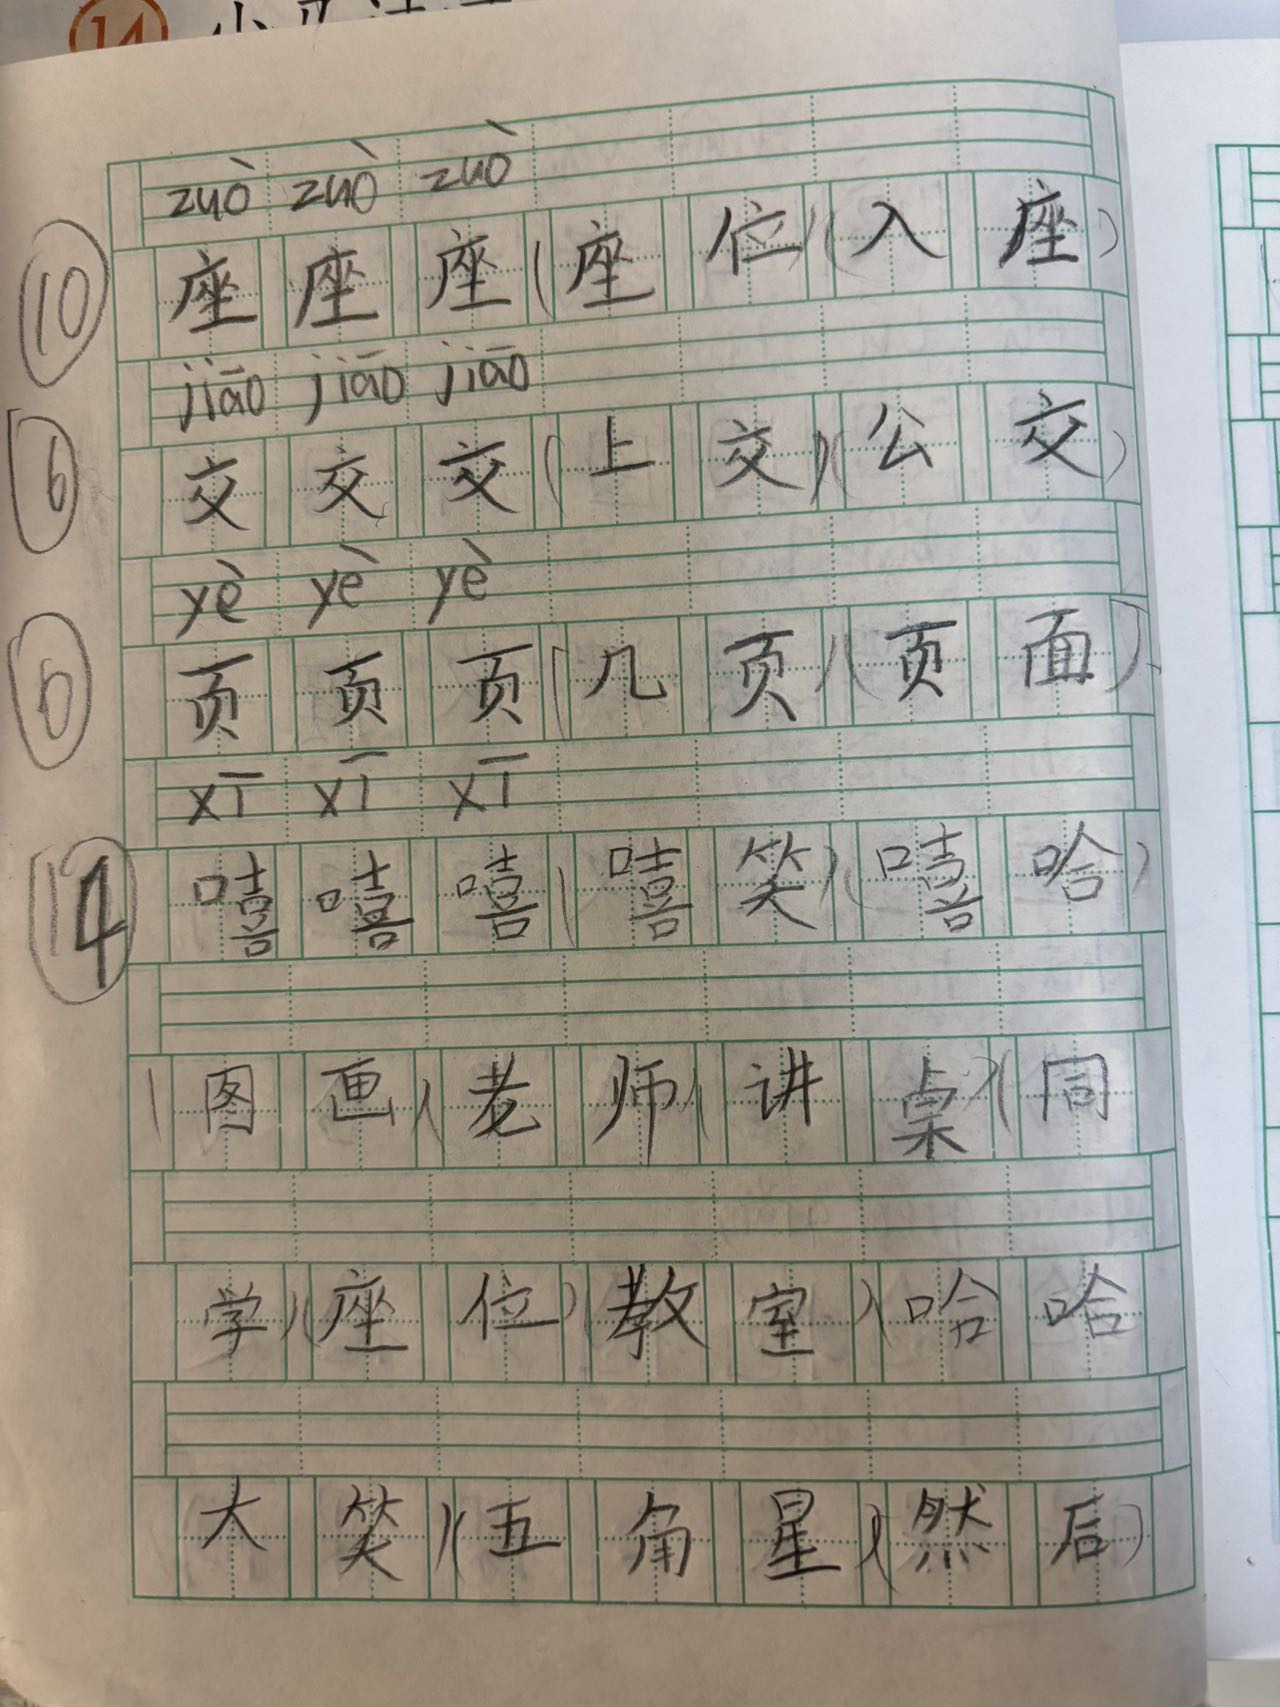 14
zuò zuò zuò
⑩ 座 座 座 (座 位) (入 座)
jiāo jiāo jiāo
⑥ 交 交 交 (上 交) (公 交)
yè yè yè
⑥ 页 页 页 (几 页) (页 面)
xī xī xī
⑭ 嘻 嘻 嘻 (嘻 笑) (嘻 哈)
(图 画) (老 师) (讲 桌) (同
学) (座 位) (教 室) (哈 哈
大 笑) (五 角 星) (然 后)